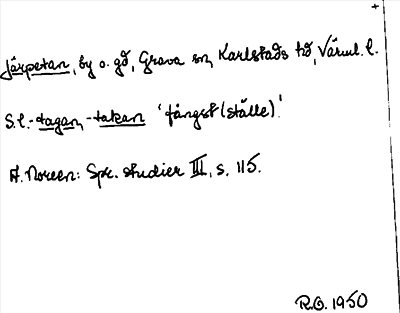 Järpetan, by o. gd, Grava sn, Karlstads hd, Värml. l.
S.l. -tagan, -takan 'fångst(ställe)'.
A. Noreen: Spr. studier III, s. 115.
R.O. 1950